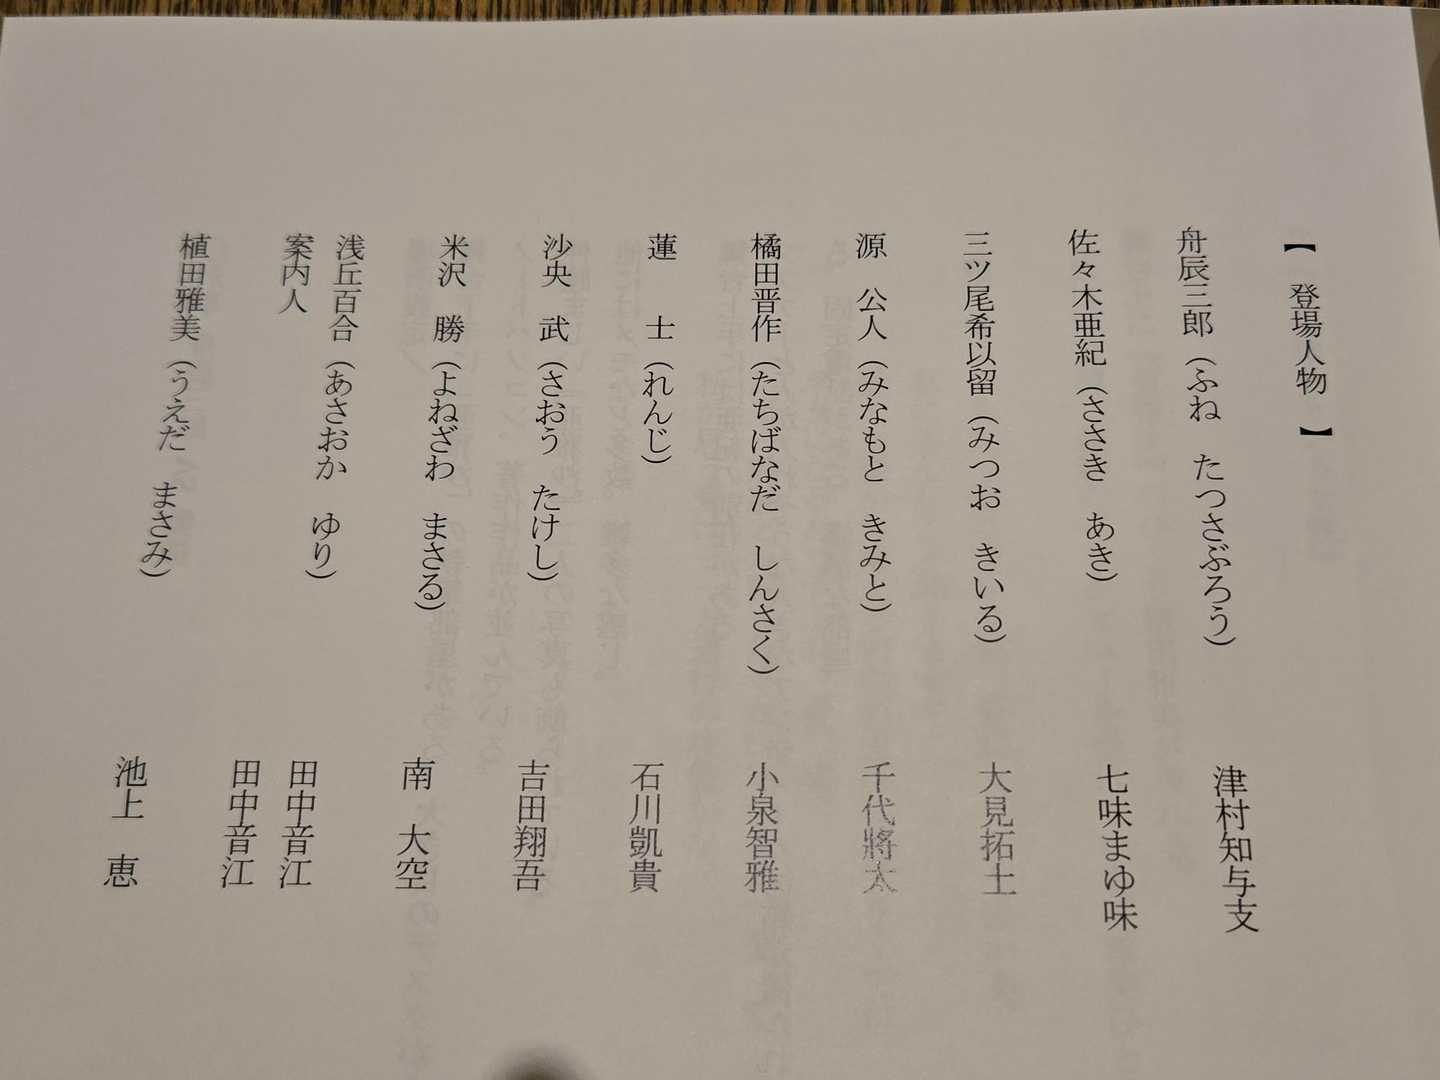 【 登場人物 】
舟辰三郎（ふね たつさぶろう） 津村知与支
佐々木亜紀（ささき あき） 七味まゆ味
三ツ尾希以留（みつお きいる） 大見拓土
源 公人（みなもと きみと） 千代將太
橘田晋作（たちばなだ しんさく） 小泉智雅
蓮 士（れんじ） 石川凱貴
沙央 武（さおう たけし） 吉田翔吾
米沢 勝（よねざわ まさる） 南 大空
浅丘百合（あさおか ゆり） 田中音江
案内人 田中音江
植田雅美（うえだ まさみ） 池上 恵